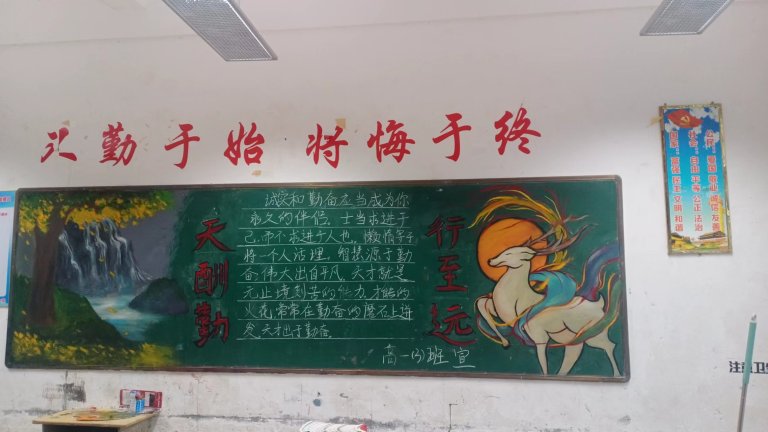 汇勤于始 将悔于终
天酬勤
诚实和勤奋应当成为你
永久的伴侣 士当求进于
己,而不求进于人也 懒惰等于
将一个人活埋 智慧源于勤
奋伟大出自平凡 天才就是
无止境刻苦的能力 才能的
火花常常在勤奋的磨石上迸
发 天才出于勤奋
高一(3)班 宣
行至远
公民：爱国 敬业 诚信 友善
社会：自由 平等 公正 法治
国家：富强 民主 文明 和谐
注意卫